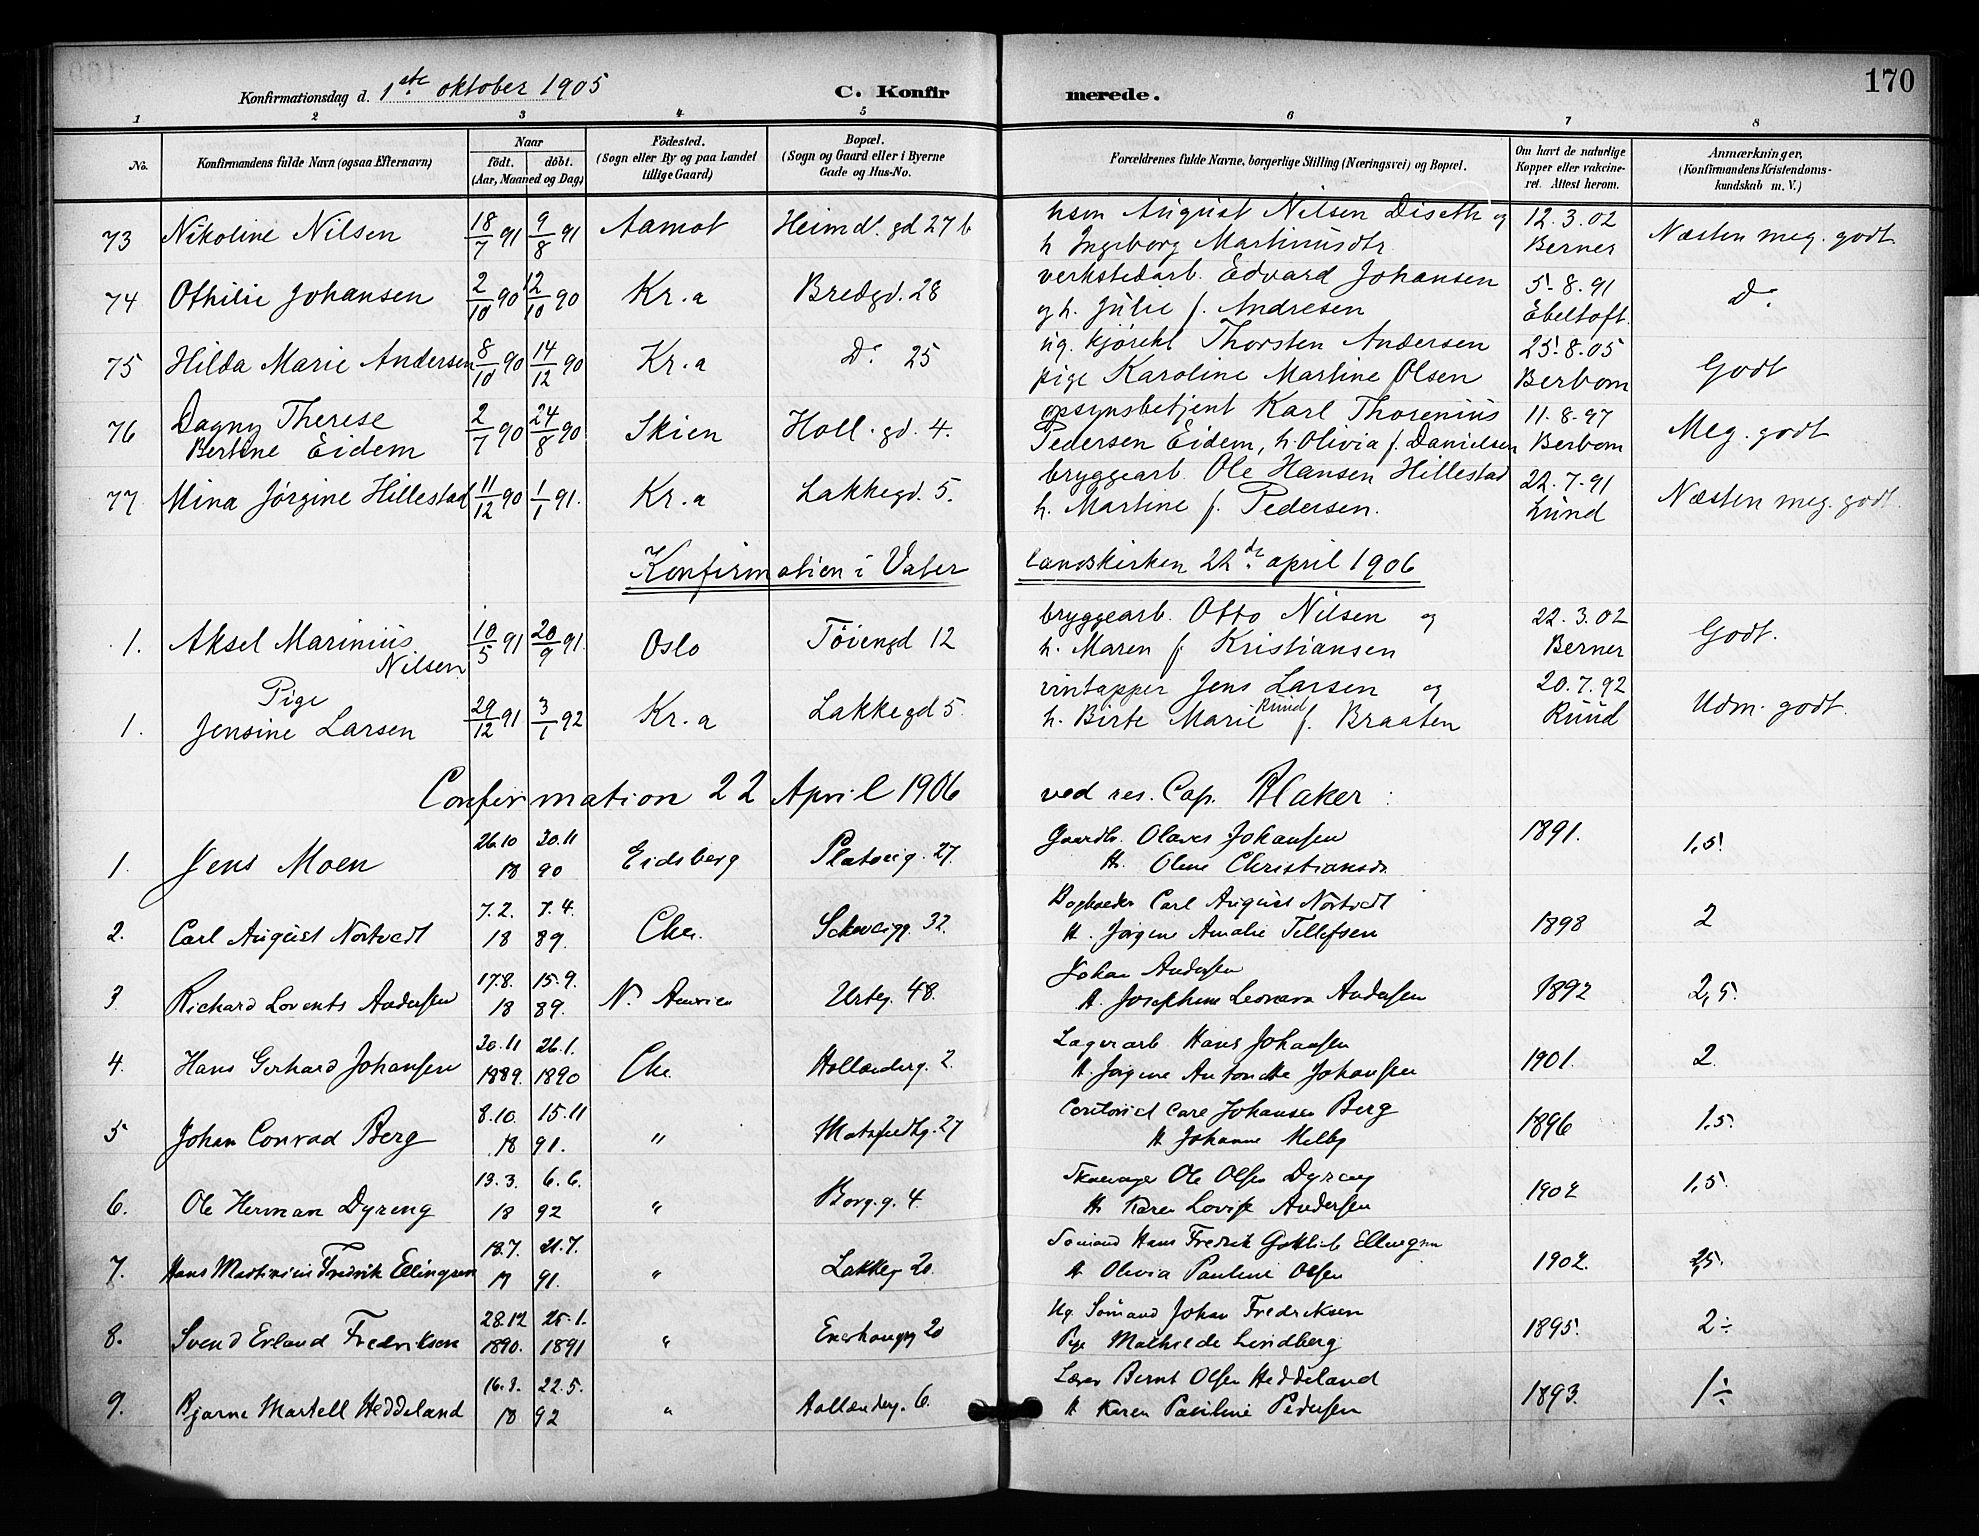 170
Konfirmationsdag d. 1ste oktober 1905 C. Konfirmerede.
1 2 3 4 5 6 7 8
No. Konfirmandens fulde Navn (ogsaa Efternavn) Naar födt. döbt. (Aar, Maaned og Dag) Födested. (Sogn eller By og paa Landet tillige Gaard) Bopæl. (Sogn og Gaard eller i Byerne Gade og Hus-No. Forældrenes fulde Navne, borgerlige Stilling (Næringsvei) og Bopæl. Om havt de naturlige Kopper eller vakcineret. Attest herom. Anmærkninger. (Konfirmandens Kristendomskundskab m. V.)
73 Nikoline Nilsen 18/7 91 9/8 91 Aamot Heimd. gd 27 b hsm August Nilsen Diseth og 12.3.02 Næsten meg. godt
h Ingeborg Martinusdtr. Berner
74 Othilie Johansen 2/10 90 12/10 90 Kr.a Bredgd. 28 verkstedarb. Edvard Johansen 5.8.91 Do
og h. Julie f. Andresen Ebeltoft.
75 Hilda Marie Andersen 8/10 90 14/12 90 Kr.a Do 25 ug. kjørekl Thorsten Andersen 25.8.05 Godt
pige Karoline Martine Olsen Berbom
76 Dagny Therese 2/7 90 24/8 90 Skien Holl. gd. 4. opsynsbetjent Karl Thorenius 11.8.97 Meg. godt
Bertine Eidem Pedersen Eidem, h. Olivia f. Danielsen Berbom
77 Mina Jørgine Hillestad 11/12 90 1/1 91. Kr.a Lakkegd. 5. bryggearb. Ole Hansen Hillestad 22.7.91 Næsten meg. godt.
h. Martine f. Pedersen. Lund
Konfirmation i Vaterlandskirken 22de april 1906
1. Aksel Marinius 10/5 91 20/9 91 Oslo Tøiengd 12 bryggearb. Otto Nilsen og 22.3.02 Godt.
Nilsen h. Maren f. Kristiansen Berner
Pige
1. Jensine Larsen 29/12 91 3/1 92 Kr.a Lakkegd 5. vintapper Jens Larsen og 20.7.92 Udm. godt.
h. Birte Marie Ruud f. Braaten Ruud
Confirmation 22 April 1906 ved res. Cap. Blaker:
1. Jens Moen 26.10 30.11 18 90 Eidsberg Platoug. 27. Gaardbr. Olaves Johansen 1891. 1,5.
H. Oline Christiansdr.
2. Carl August Nörtvedt 7.2. 7.4. 18 89. Chr. Schweigg. 32. Carl August Nörtvedt 1898 2
H. Jörgine Amalie Tellefsen
3 Richard Lorents Andersen 17.8. 15.9. 18 89. N. Amerien Urteg. 48. Johan Andersen 1892 2,5.
H. Josephine Leonora Andersen
4. Hans Gerhard Johansen 30.11 26.1. 1889. 1890 Chr. Hollenderg. 2. Lagerarb Hans Johansen 1901. 2.
H. Jörgine Antonette Johansen
5 Johan Conrad Berg 8.10. 15.11 18 91. " Motzfeldtg. 27 Carl Johansen Berg 1896 1,5.
H. Johanne Melby
6. Ole Herman Dyreng 13.3. 6.6. 18 92 " Borg.g. 4. Ole Olsen Dyreng 1902 1,5.
H. Karen Lovise Andersen
7. Hans Martinius Fredrik Ellingsen 18.7. 21.7. 18 91. " Lakkeg 20. Sömand Hans Fredrik Gottlieb Ellingsen 1902. 2,5.
H. Olivia Pauline Olsen
8. Svend Erland Fredriksen 28.12 25.1. 1890. 1891 " Enerhaugg 20 Ug. Sömand Johan Fredriksen 1895. 2÷
Pige Mathilde Lindberg
9. Bjarne Martell Heddeland 16.3. 22.5. 18 92 " Hollenderg. 6. Bernt Olsen Heddeland 1893. 1÷
H Karen Pauline Pedersen